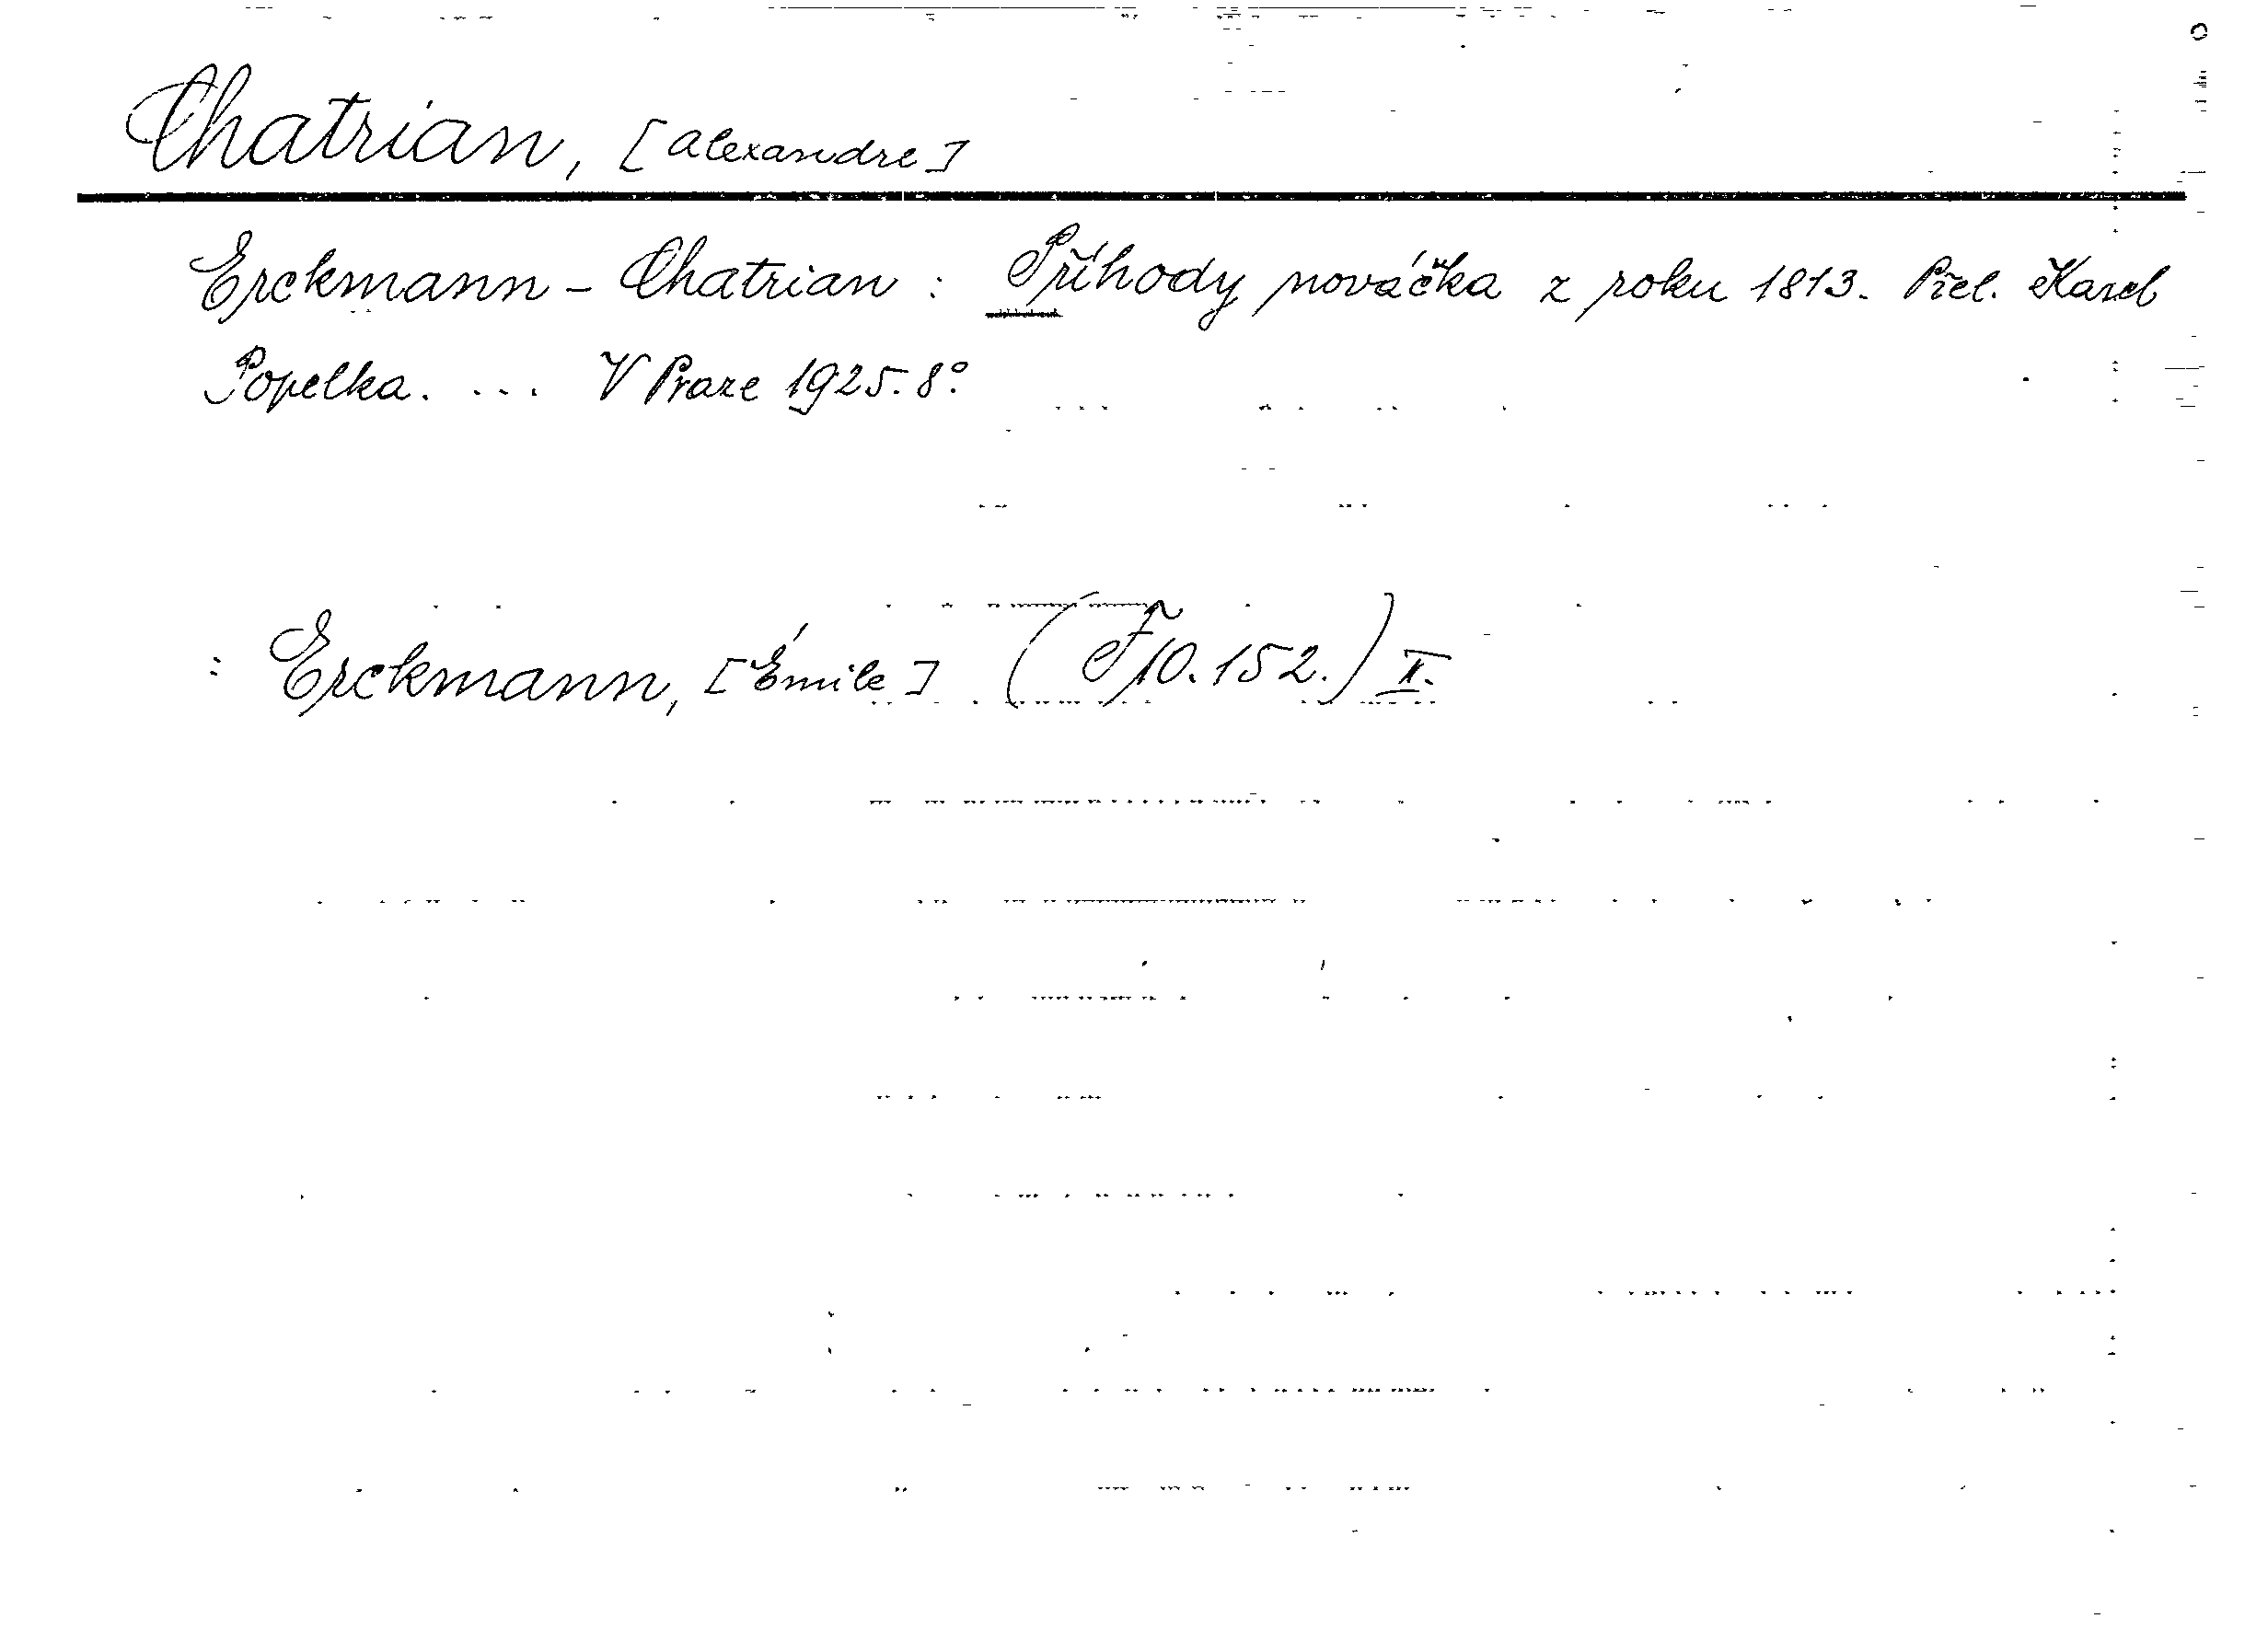 Chatrian, [Alexandre]
Erckmann - Chatrian : Příhody nováčka z roku 1813. Přel. Karel
Popelka. ... V Praze 1925. 8°.
: Erckmann, [Émile] (F 10.152.) II.